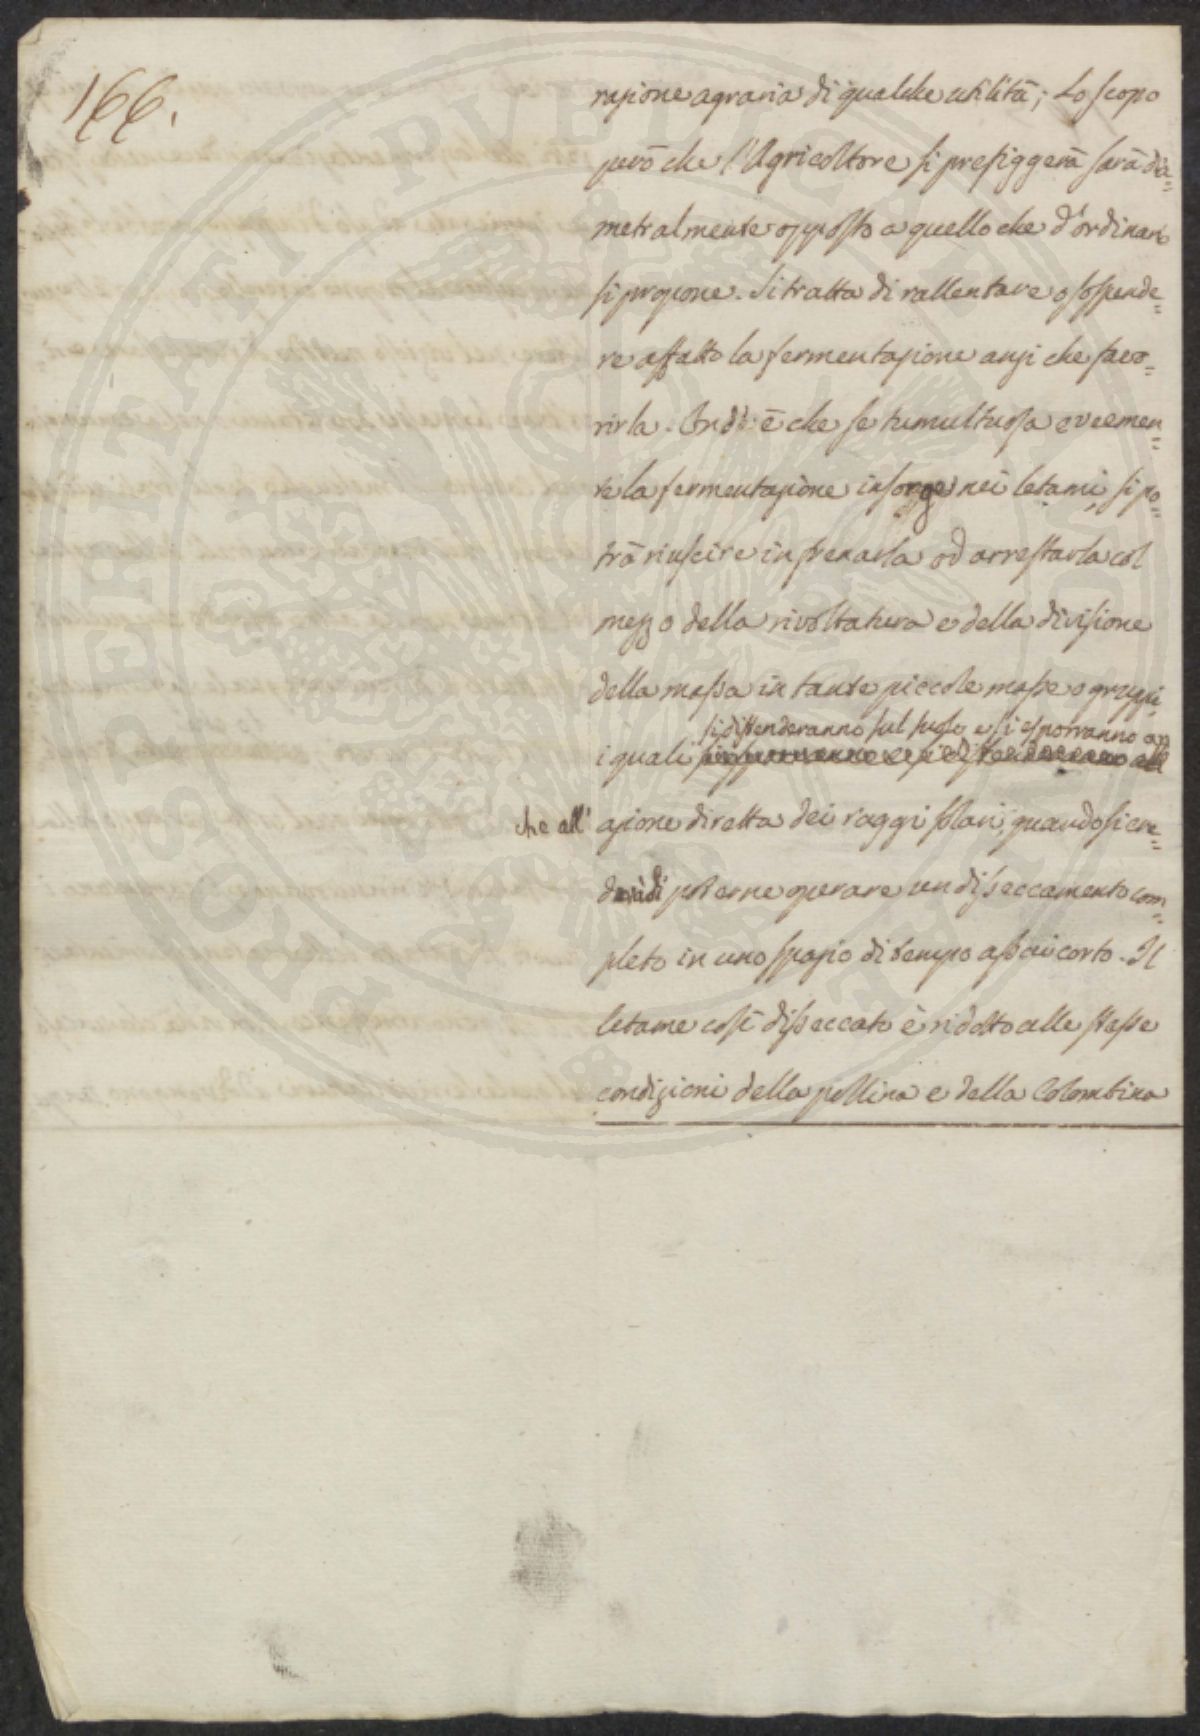 166.
razione agraria di qualche utilità; Lo scopo
però che l'Agricoltore si prefiggerà sarà dia=
metralmente opposto a quello che d'ordinario
si propone. Si tratta di rallentare o sospende=
re affatto la fermentazione anzi che favo=
rirla. Ond' è che se tumultuosa e veemen=
te la fermentazione insorge nei letami, si po=
trà riuscire in frenarla od arrestarla col
mezzo della rivoltatura e della divisione
della massa in tante piccole masse o gruppi,
si distenderanno sul suolo, e si esporranno an
i quali
che all' azione diretta dei raggi solari, quando si cre=
da di poterne operare un disseccamento com=
pleto in uno spazio di tempo assai corto. Il
letame così disseccato è ridotto alle stesse
condizioni della pollina e della Colombina